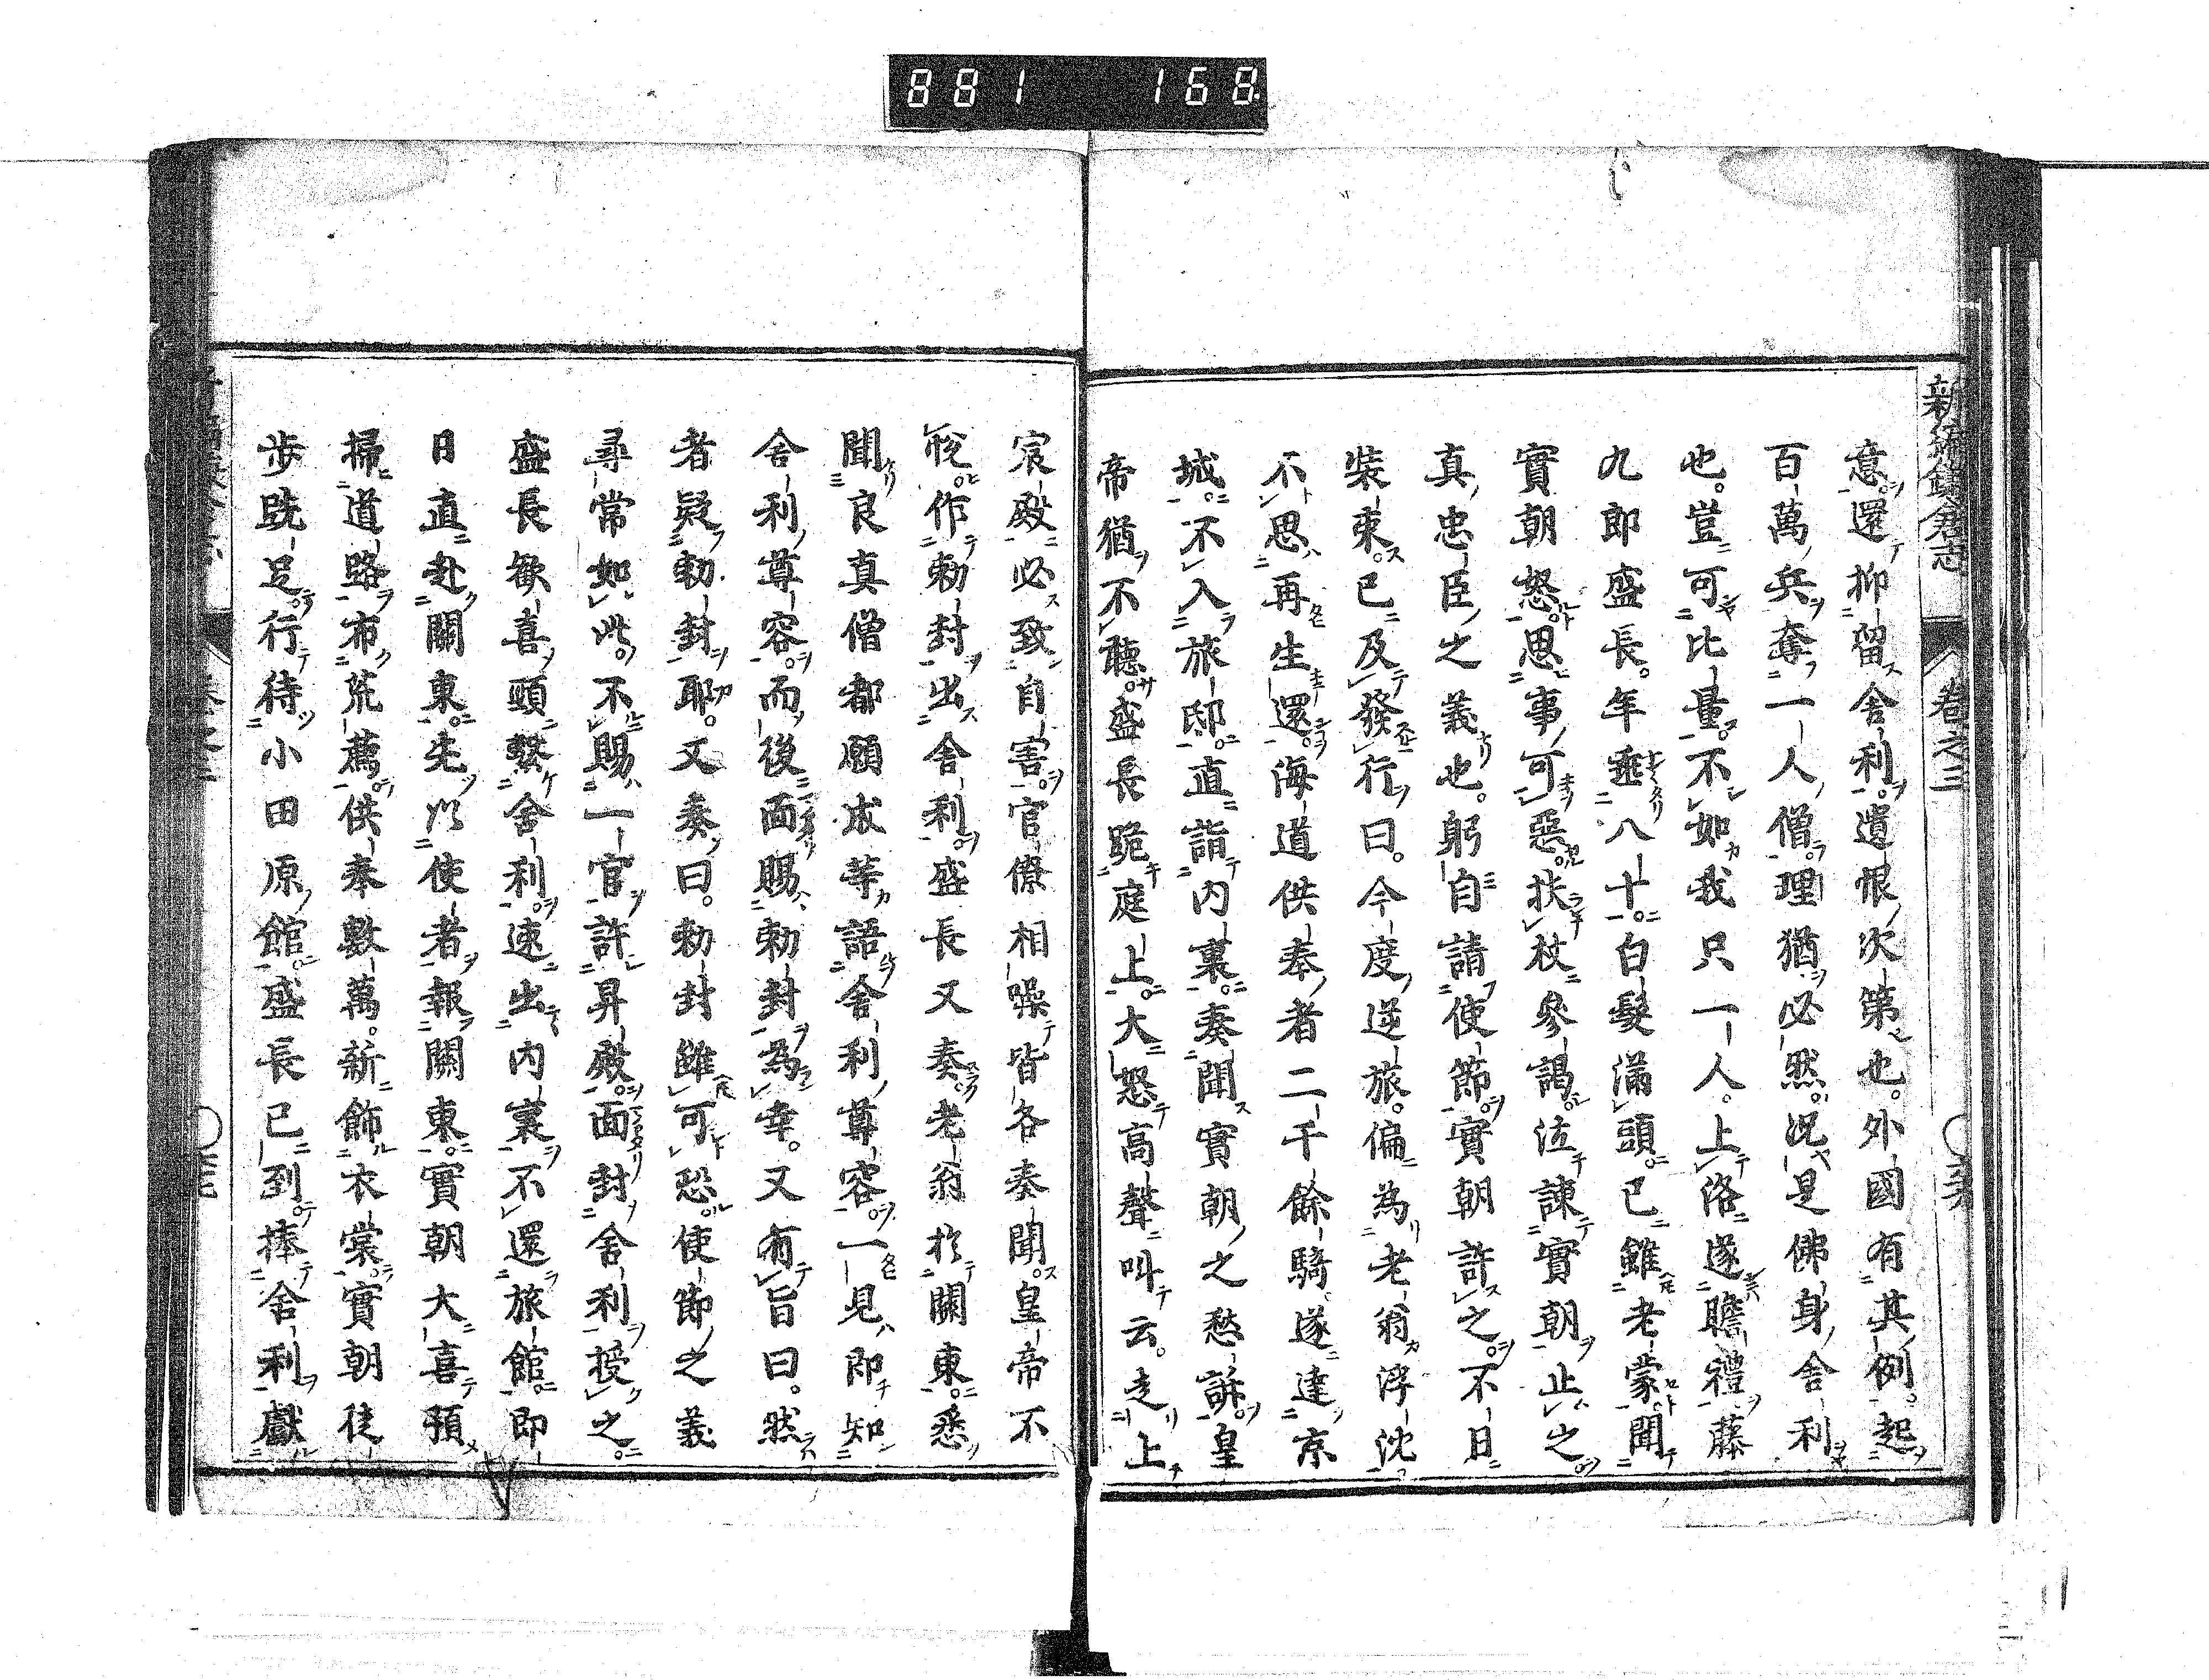 881 168
新編鎌倉志 卷之三
意還抑留舍利遺恨次第也外國有其例起
百萬兵奪一人僧理猶必然況是佛身舍利
也豈可比量不如我只一人上洛遂瞻禮藤
九郎盛長年垂八十白髮滿頭已雖老蒙聞
實朝怒思事可惡扶杖參謁泣諫實朝止之
真忠臣之義也躬自請使節實朝許之不日
裝束已及發行曰今度逆旅偏為老翁浮沈
不思再生還海道供奉者二千餘騎遂達京
城不入旅邸直詣內裏奏聞實朝之愁訴皇
帝猶不聽盛長跪庭上大怒高聲叫云走上
宸殿必致自害官僚相噪皆各奏聞皇帝不
悅作勅封出舍利盛長又奏老翁於關東悉
聞良真僧都願成等語舍利尊容一見即知
舍利尊容而後面賜勅封為幸又有旨曰然
者疑勅封耶又奏曰勅封雖可恐使節之義
尋常如此不賜一官許昇殿面封舍利授之
盛長歡喜頸繫舍利速出內裏不還旅館即
日直赴關東先以使者報關東實朝大喜預
掃道路布荒薦供奉數萬新飾衣裳實朝徒
步跣足行待小田原館盛長已到捧舍利獻